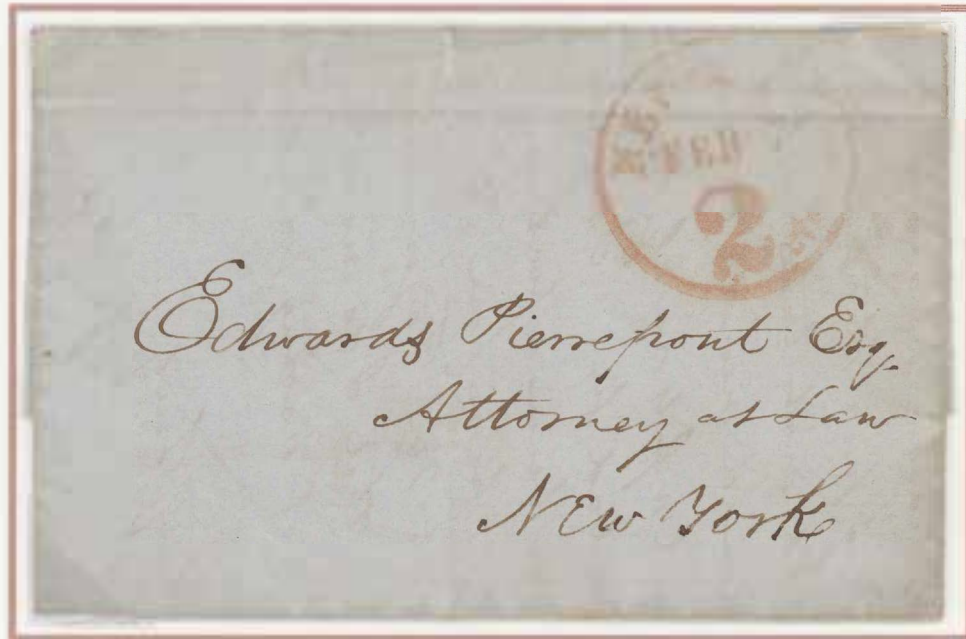 2
Edwards Pierrepont Esq.
Attorney at Law
New York